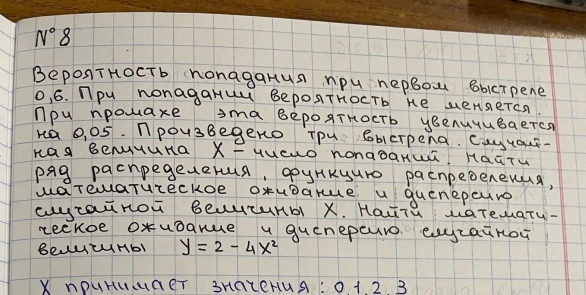 N°8
Вероятность попадания при первом выстреле
0,6. При попадании вероятность не меняется.
При промахе эта вероятность увеличивается
на 0,05. Произведено три выстрела. Случай-
ная величина X – число попаданий. Найти
ряд распределения, функцию распределения,
математическое ожидание и дисперсию
случайной величины X. Найти математи-
ческое ожидание и дисперсию случайной
величины y = 2 – 4x²
X принимает значения: 0,1,2,3